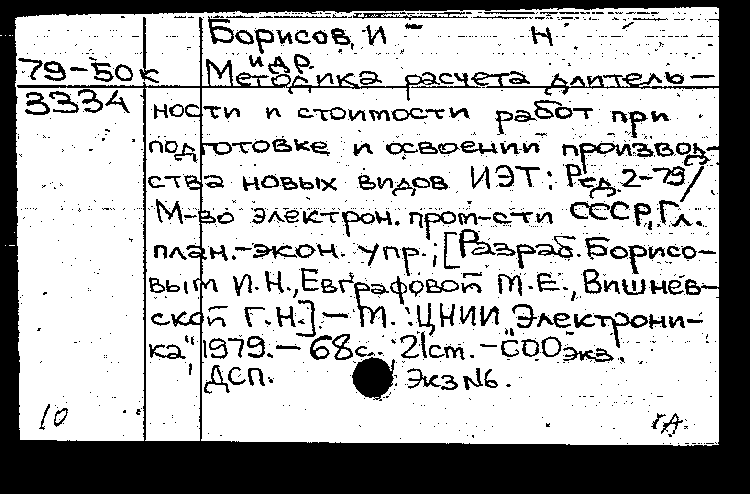 Борисов, И Н
и др.
79-50к Методика расчета длитель-
3334 ности и стоимости работ при
подготовке и освоении производ-
ства новых видов ИЭТ: Ред. 2-79/
М-во электрон. пром-сти СССР, Гл.
план.-экон. упр.; [Разраб. Борисо-
вым И.Н., Евграфовой М.Е., Вишнев-
ской Г.Н.] - М.: ЦНИИ "Электрони-
ка", 1979. - 68 с. 21 см. - 600 экз.
ДСП. Экз N6.
10